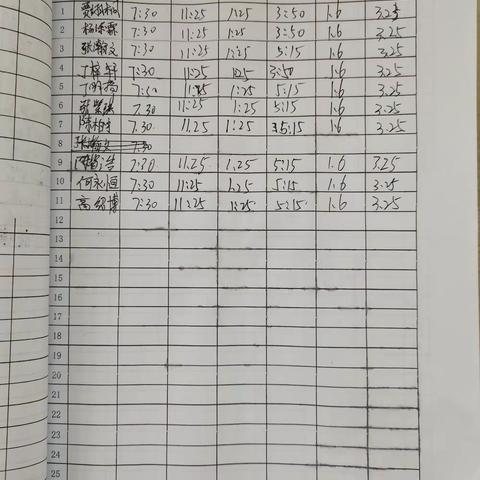 1 7:30 11:25 1:25 3:50 1.6 3.25
2 杨添霖 7:30 11:25 1:25 3:50 1.6 3.25
3 张瀚文 7:30 11:25 1:25 5:15 1.6 3.25
4 丁梓轩 7:30 11:25 1:25 3:50 1.6 3.25
5 7:30 11:25 1:25 5:15 1.6 3.25
6 7.30 11:25 1:25 5:15 1.6 3.25
7 陈柏宇 7.30 11.25 1:25 5:15 1.6 3.25
8 张瀚文 7:30
9 7:30 11.25 1.25 5:15 1.6 3.25
10 何永恒 7:30 11:25 1.25 5:15 1.6 3.25
11 高绍博 7:30 11:25 1:25 5:15 1.6 3.25
12
13
14
15
16
17
18
19
20
21
22
23
24
25